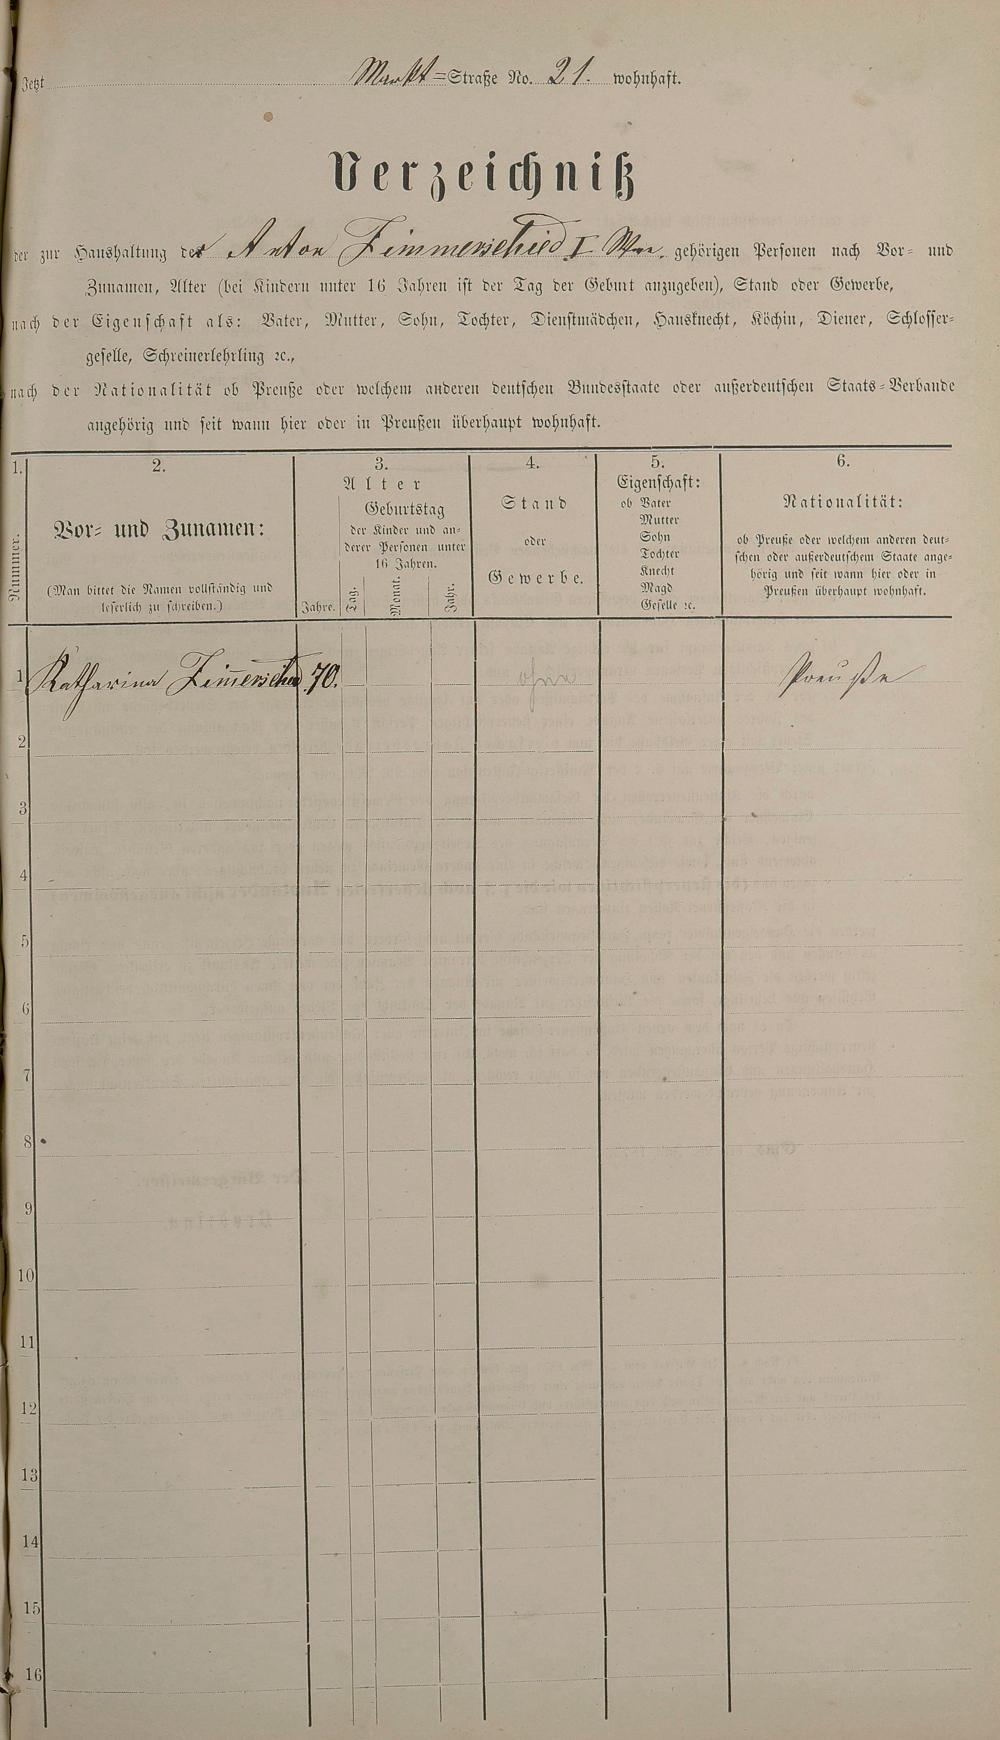 Jetzt Markt=Straße No. 21. wohnhaft.
Verzeichniß
der zur Haushaltung der Anton Zimmerschied I Wwe. gehörigen Personen nach Vor- und
Zunamen, Alter (bei Kindern unter 16 Jahren ist der Tag der Geburt anzugeben), Stand oder Gewerbe,
nach der Eigenschaft als: Vater, Mutter, Sohn, Tochter, Dienstmädchen, Hausknecht, Köchin, Diener, Schlosser-
geselle, Schreinerlehrling ꝛc.,
nach der Nationalität ob Preuße oder welchem anderen deutschen Bundesstaate oder außerdeutschen Staats-Verbande
angehörig und seit wann hier oder in Preußen überhaupt wohnhaft.
1. 2. 3. 4. 5. 6.
Nummer.
Vor- und Zunamen:
(Man bittet die Namen vollständig und
leserlich zu schreiben.)
Alter
Jahre.
Geburtstag
der Kinder und an-
derer Personen unter
16 Jahren.
Tag. Monat. Jahr.
Stand
oder
Gewerbe.
Eigenschaft:
ob Vater
Mutter
Sohn
Tochter
Knecht
Magd
Geselle ꝛc.
Nationalität:
ob Preuße oder welchem anderen deut-
schen oder außerdeutschem Staate ange-
hörig und seit wann hier oder in
Preußen überhaupt wohnhaft.
1 Katharina Zimerschied 70. ohne Preuße
2
3
4
5
6
7
8
9
10
11
12
13
14
15
16